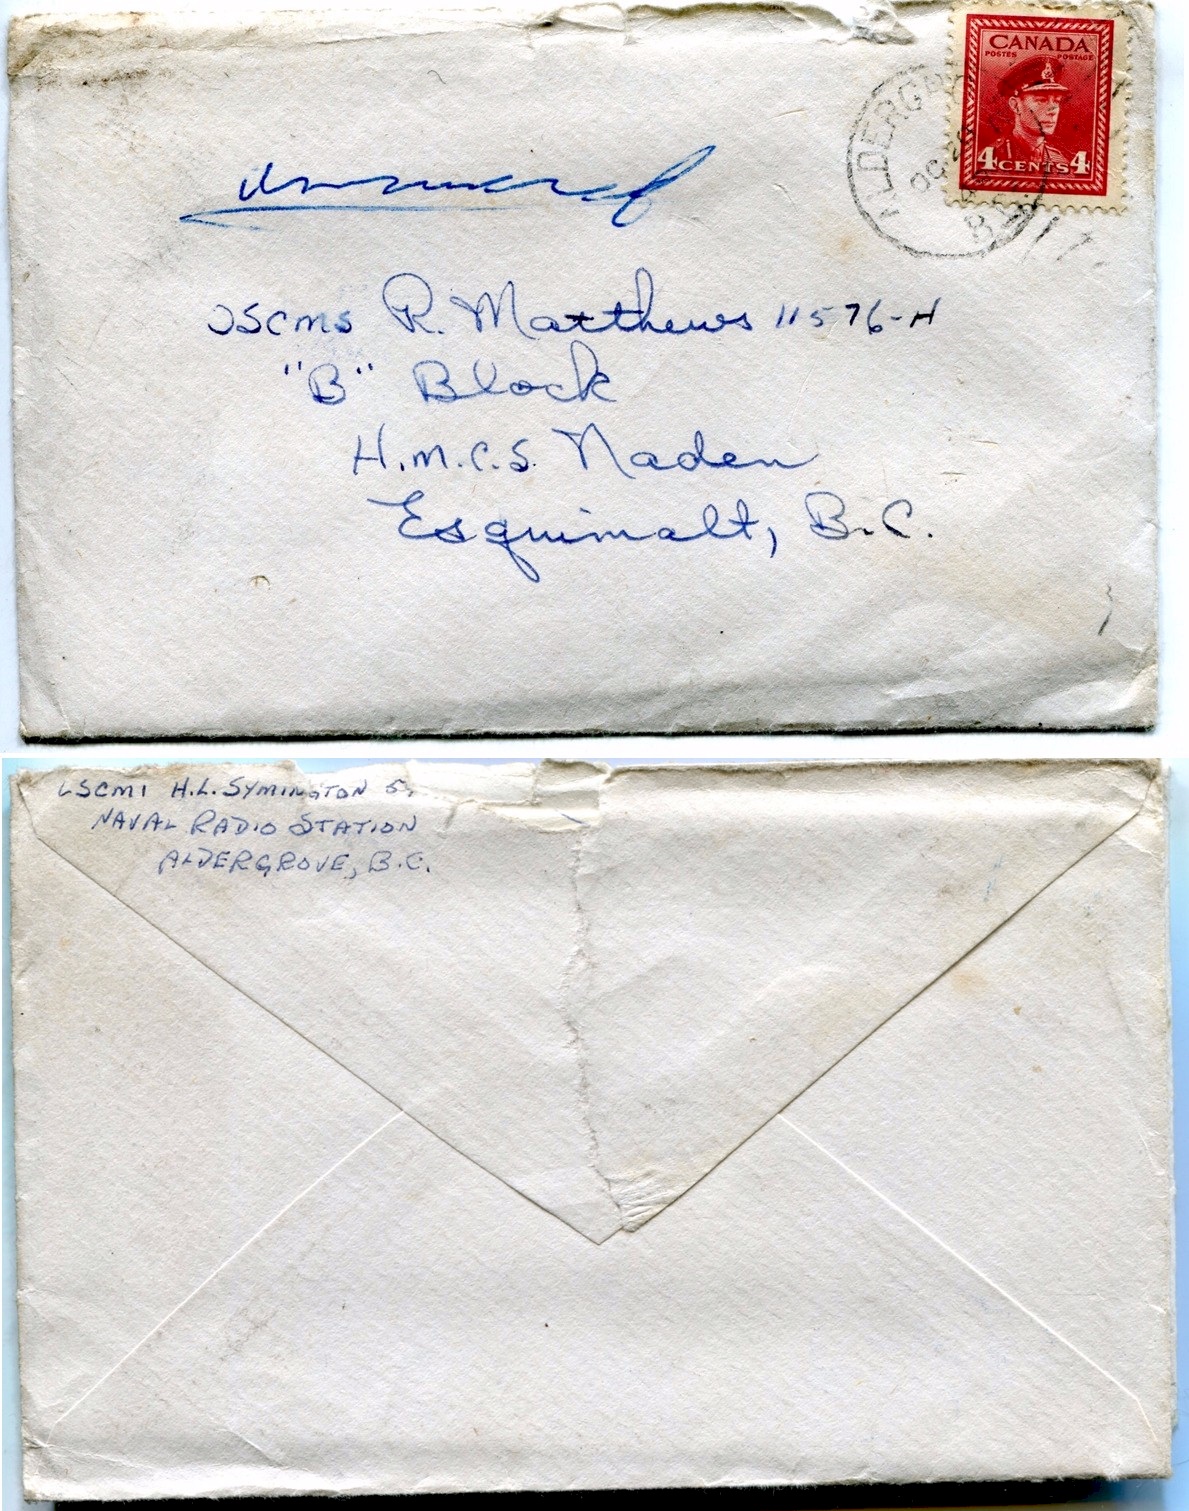 CANADA
POSTES POSTAGE
4 CENTS 4
Answered
OSCMS R. Matthews 11576-H
"B" Block
H.M.C.S. Naden
Esquimalt, B.C.
LSCM1 H.L. SYMINGTON
NAVAL RADIO STATION
ALDERGROVE, B.C.